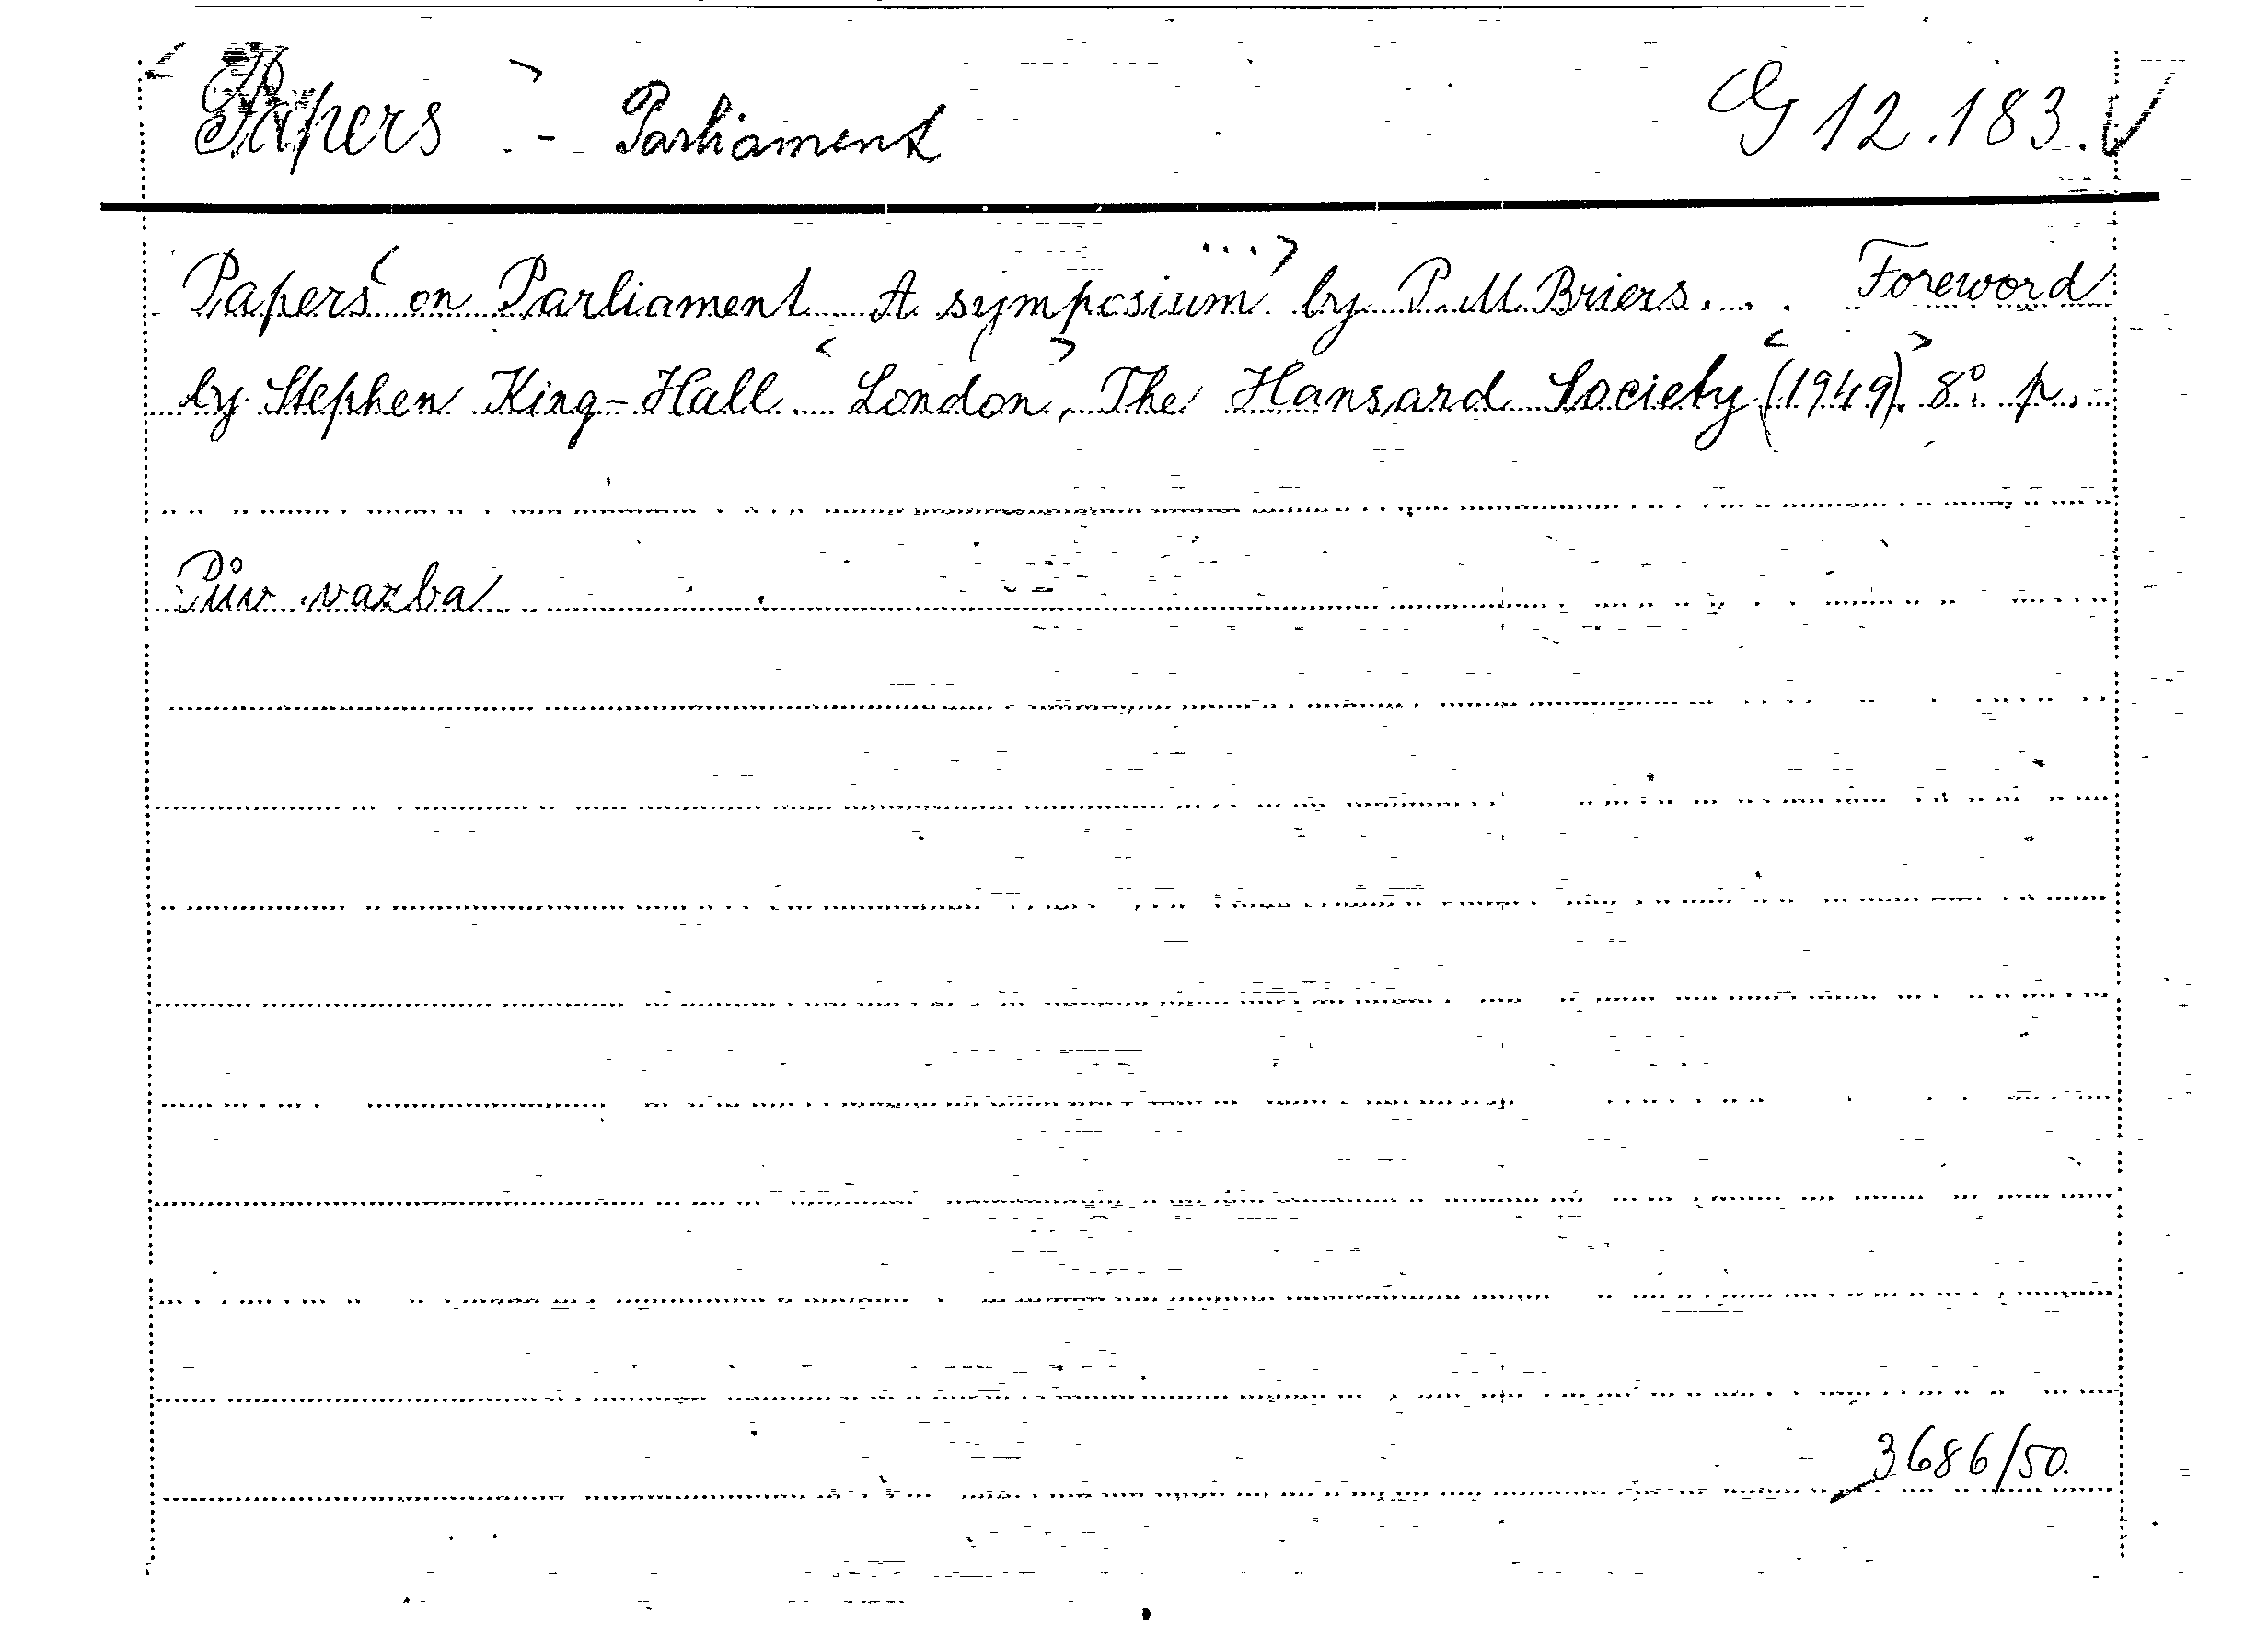 Papers - Parliament G 12.183. V
Papers on Parliament A symposium by P. M. Briers... Foreword
by Stephen King-Hall London, The Hansard Society (1949). 8° p.-
Pův. vazba
3686/50.